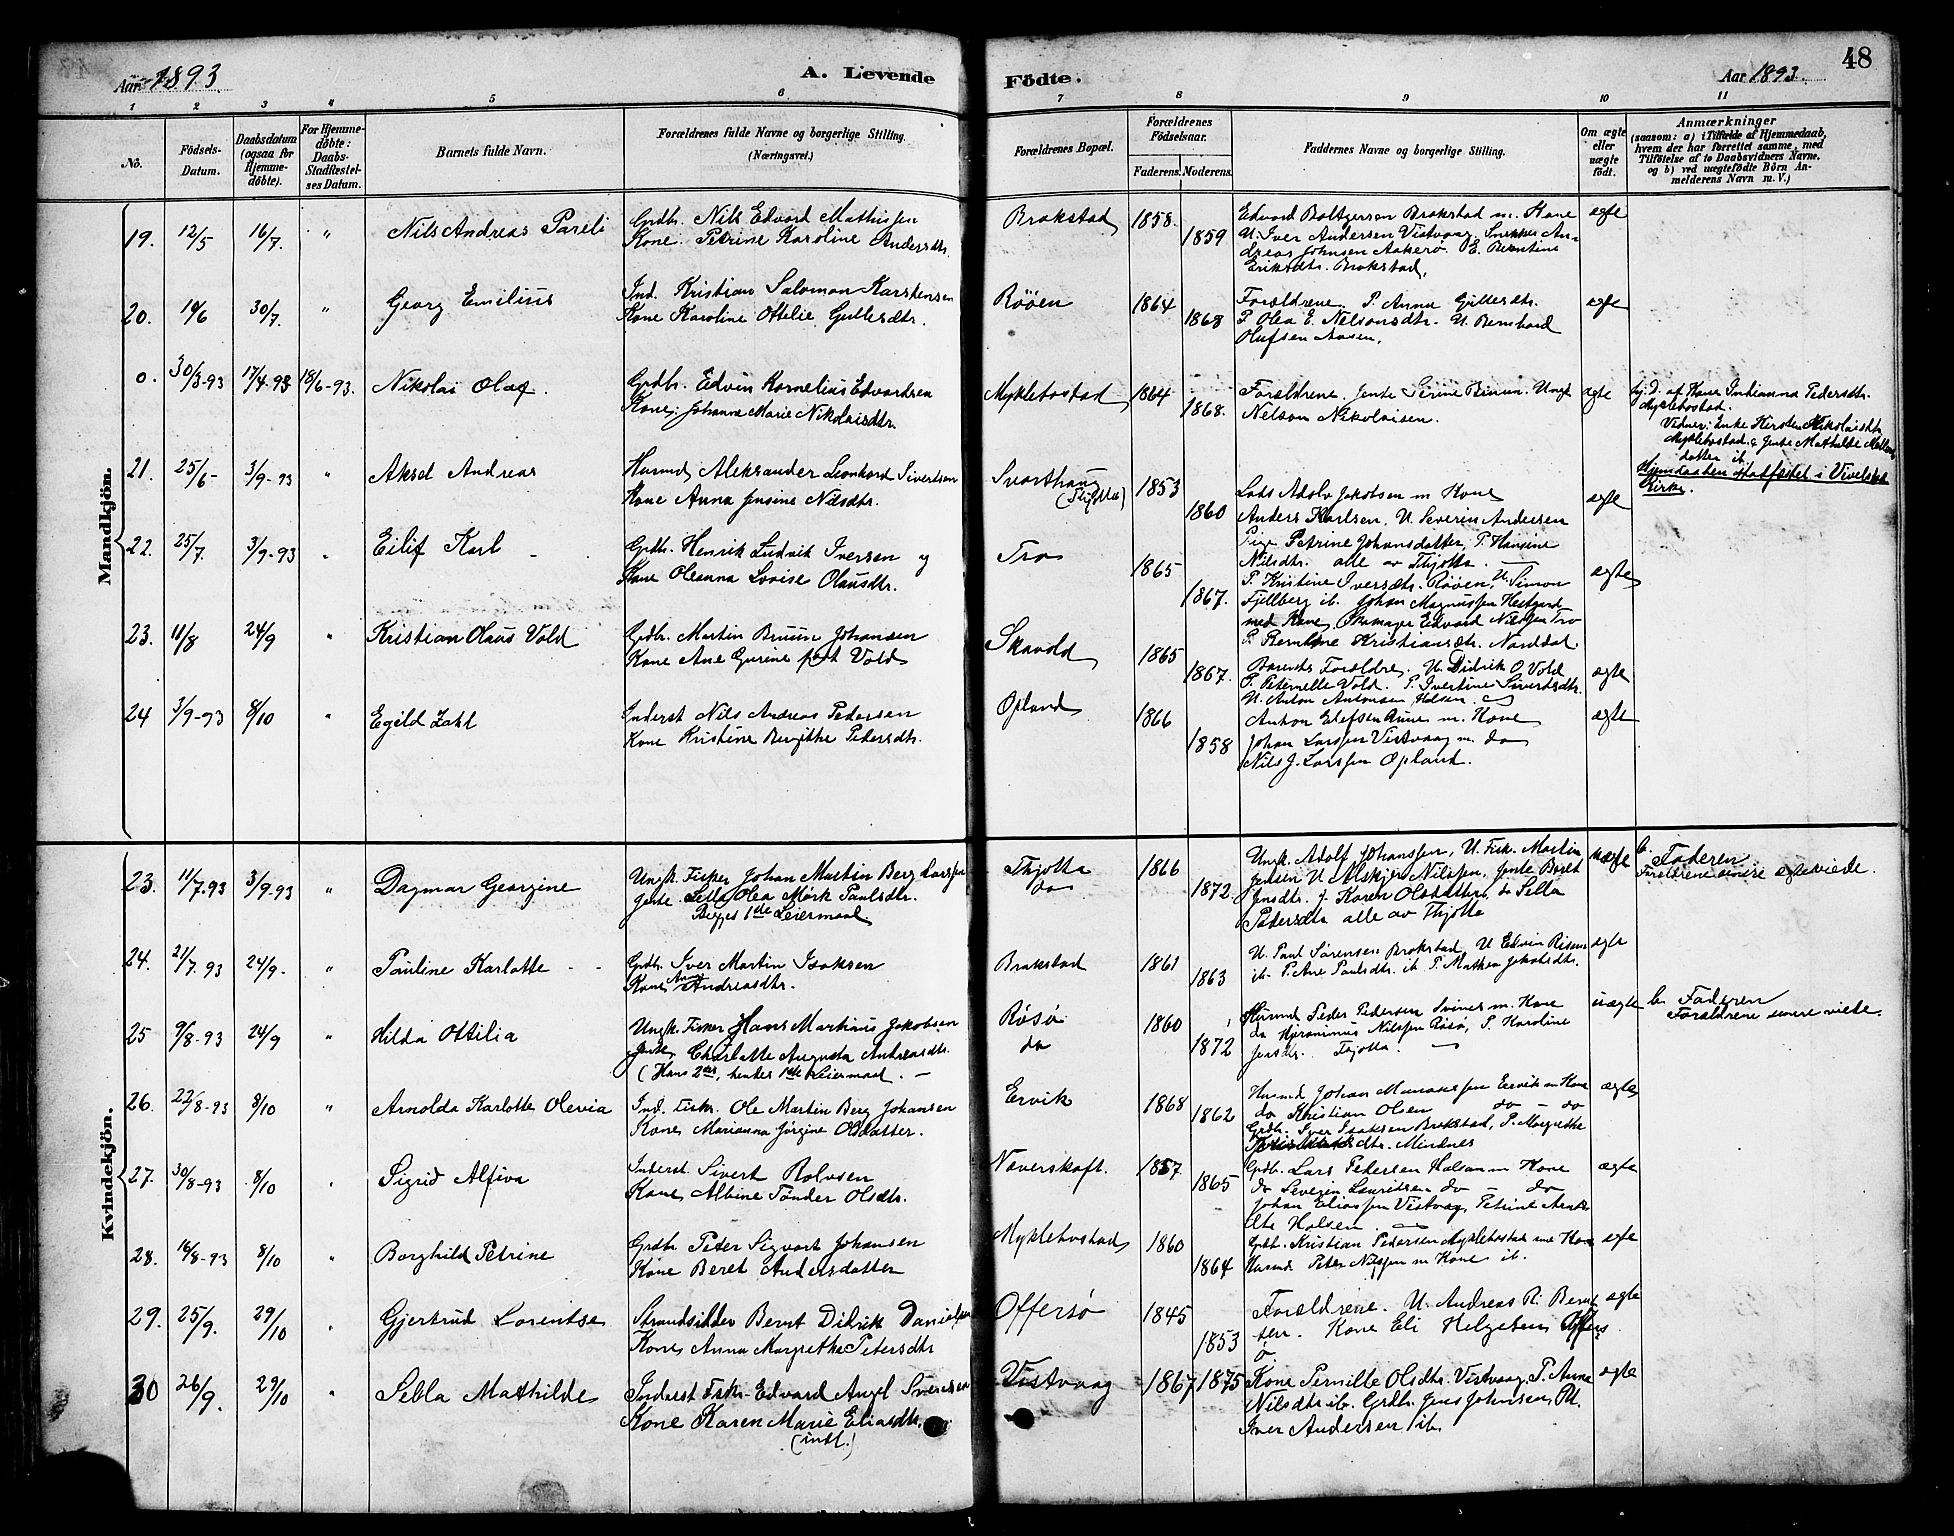 Aar 1893.
A. Levende
Födte.
Aar 1893.
48
1 2 3 4 5 6 7 8 9 10 11
No.
Födsels-Datum.
Daabsdatum (ogsaa for Hjemme-döbte).
For Hjemme-döbte: Daabs-Stadfæstel-ses Datum.
Barnets fulde Navn.
Forældrenes fulde Navne og borgerlige Stilling. (Næringsvei.)
Forældrenes Bopæl.
Forældrenes Födselsaar.
Faderens. Moderens.
Faddernes Navne og borgerlige Stilling.
Om ægte eller uægte födt.
Anmærkninger
(saasom: a) i Tilfælde af Hjemmedaab,
hvem der har forrettet samme, med
Tilföielse af to Daabsvidners Navne,
og b) ved uægtefödte Börn An-
melderens Navn m. V.)
Mandkjön.
19. 12/5 16/7. " Nils Andreas Pareli
Grdb. Nils Edvard Mathissen
Kone Petrine Karoline Andersdtr.
Brakstad 1858. 1859
Edvard Baltzersen Brakstad m. Kone
U. Iver Andersen Vistvaag. Snekker An-
dreas Johnsen Aakerø. E. Berntine
Eriksdtr. Brakstad.
ægte
20. 19/6 30/7. " Georg Emilius
Ind. Kristian Salomon Karstensen
Kone Karoline Ottelie Gullesdtr.
Røøen 1864 1868
Forældrene. P. Anna Gullesdtr.
P. Olea E. Nelsonsdtr. U. Bernhard
Olufsen Aasen.
ægte
0. 30/3-93 17/4-93 18/6-93. Nikolai Olaf.
Grdb. Edvin Kornelius Edvardsen
Kone: Johanna Marie Nikolaisdtr.
Myklebostad 1864 1868.
Forældrene. Jente Serine Bruun. Ungk.
Nelson Nikolaisen.
ægte
hj. d. af Kone Indianna Pedersdtr.
Myklebostad.
Vidner: Enke Kirsten Nikolaisdtr.
Myklebostad & Jente Mathilde
datter ib.
Hjemdaaben stadfæstet i Vevelstad
Kirke.
21. 25/6- 3/9-93 " Aksel Andreas
Husmd. Aleksander Leonhard Sivertsen
Kone Anna Jensine Nilsdtr.
Svarthaug
(Thjotta) 1853 1860
Lods Adolv Jakobsen m Kone
Anders Karlsen. U. Severin Andersen
Pige Petrine Johansdatter, P. Hansine
Nilsdtr. alle av Thjotta.
ægte
22. 25/7. 3/9-93 " Eilif Karl
Grdb. Henrik Ludvik Iversen og
Kone Oleanna Lovise Olausdtr.
Tro 1865 1867.
P. Kristine Iversdtr. Røøen, U. Simon
Fjellberg ib. Johan Magnussen Hestgard
med Kone, Edvard Nilssen Tro
P. Kristiansdtr. Norddal.
ægte
23. 11/8 24/9 " Kristian Olaus Vold
Grdb. Martin Bruun Johansen
Kone Ane Gurine født Vold
Skavold 1865 1867.
Barnets Forældre. U. Didrik O. Vold
P. Peternelle Vold. P. Ivertine Sivertsdtr.
U. Anton Antonsen Halsen.
ægte
24 3/9-93 8/10 " Egild Zahl
Inderst Nils Andreas Pedersen
Kone Kristine Bergithe Pedersdtr.
Opland 1866 1858
Anton Elefsen Aune m. Kone
Johan Larssen Vistvaag m. do
Nils J. Larssen Opland.
ægte
Kvindekjön.
23. 11/7.93 3/9-93 " Dagmar Georgine
Ungk. Fisker Johan Martin Berg Larssen
Jente Sella Olea Mørk Paulsdtr.
Begges 1ste Leiermaal
Thjotta
do 1866 1872.
Ungk. Adolf Johanssen, U. Fisk. Martin
Jensen U. Nilssen, Jente Beret
Jensdtr. j. Karen Olsdatter, do Sella
Pedersdtr alle av Thjotta
uægte
b. Faderen
Forældrene senere ægteviede.
24. 21/7.93 24/9- " Pauline Karlotte
Grdb. Iver Martin Isaksen
Kone Ane Andreasdtr.
Brakstad 1861 1863
U. Paul Sørensen Brakstad, U Edvin
ib. P. Ane Paulsdtr. ib P. Mathea Jakobsdtr.
ægte
25 9/8-93 24/9 " Hilda Ottilia
Ungk. Fisker Hans Martinus Jakobsen
Jente Charlotte Augusta Andreasdtr.
(Hans 2det, hendes 1ste Leiermaal.
Røsø
do 1860 1872
Husmd Peder Pedersen m. Kone
do Hjeronimus Nilssen Røsø, P. Karoline
Jensdtr. Thjotta
uægte
b. Faderen
Forældrene senere viede.
26. 22/8-93 8/10 " Arnolda Karlotte Olevia
Ind. Fisk. Ole Martin Berg Johansen
Kone Marianna Jørgine Olsdatter.
Ervik 1868 1862
Husmd Johan Ervik m Kone
do Kristian Olsen do - do
Grdb. Iver Isaksen Brakstad, P. Margrethe
dtr. Mindnes
ægte
27. 30/8-93 8/10 Sigrid Alfiva
Inderst Sivert Rolvsen
Kone Albine Tønder Olsdtr.
Naverskaft. 1857 1865
Grdb. Lars Pedersen Halsan m Kone
do Severin Lauritsen do - do
Johan Eliassen Vistvaag, Petrine
Halsen.
ægte
28. 16/8-93 8/10 " Borghild Petrine
Grdb. Peter Sigvart Johansen
Kone Beret Andersdatter
Myklebostad 1860 1864
Grdb. Kristian Pedersen Myklebostad med Kone
Husmd Peter Nilssen m Kone ib.
ægte
29. 25/9. 29/10 " Gjertrud Lorentse
Strandsidder Bernt Didrik Danielsen
Kone Anna Margrethe Petersdtr
Offersø 1845 1853
Forældrene. U. Andreas R. Bernt
sen. Kone Eli Helgesen Offers
ø.
ægte
30 26/9. 29/10 " Sella Mathilde
Inderst Fisk. Edvard Angel Svendsen
Kone Karen Marie Eliasdtr.
(indt.)
Vistvaag 1867 1875
Kone Pernille Olsdtr. Vistvaag, P. Anna
Nilsdtr ib. Grdb. Jens Johnsen,
Iver Andersen ib.
ægte